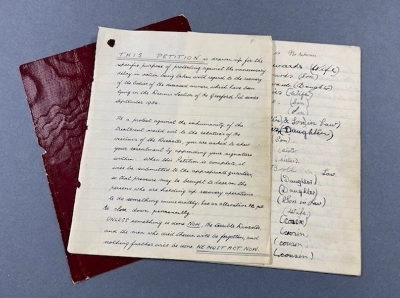 THIS PETITION is drawn up for the
specific purpose of protesting against the unnecessary
delay in action being taken with regard to the recovery
of the bodies of the deceased miners which have been
lying in the Dennis Section of the Gresford Pit since
September 1934.
As a protest against the inhumanity of the
treatment meted out to the relatives of the
victims of the Disaster, you are asked to show
your resentment by appending your signature
within. When this Petition is complete, it
will be submitted to the appropriate quarter
so that pressure may be brought to bear on the
persons who are holding up recovery operations
to do something immediately; has no alternative the pit
to close down permanently.
UNLESS something is done NOW, the terrible Disaster
and the men who died therein will be forgotten, and
nothing further will be done. WE MUST ACT NOW.
(Wife)
(Son)
(Daughter)
(Wife)
Son
Son in Law
(Daughter)
Son
(Sister)
(Sister)
Law
(Daughter)
(Daughter)
(Son in Law)
(Wife)
(cousin)
(cousin)
(cousin)